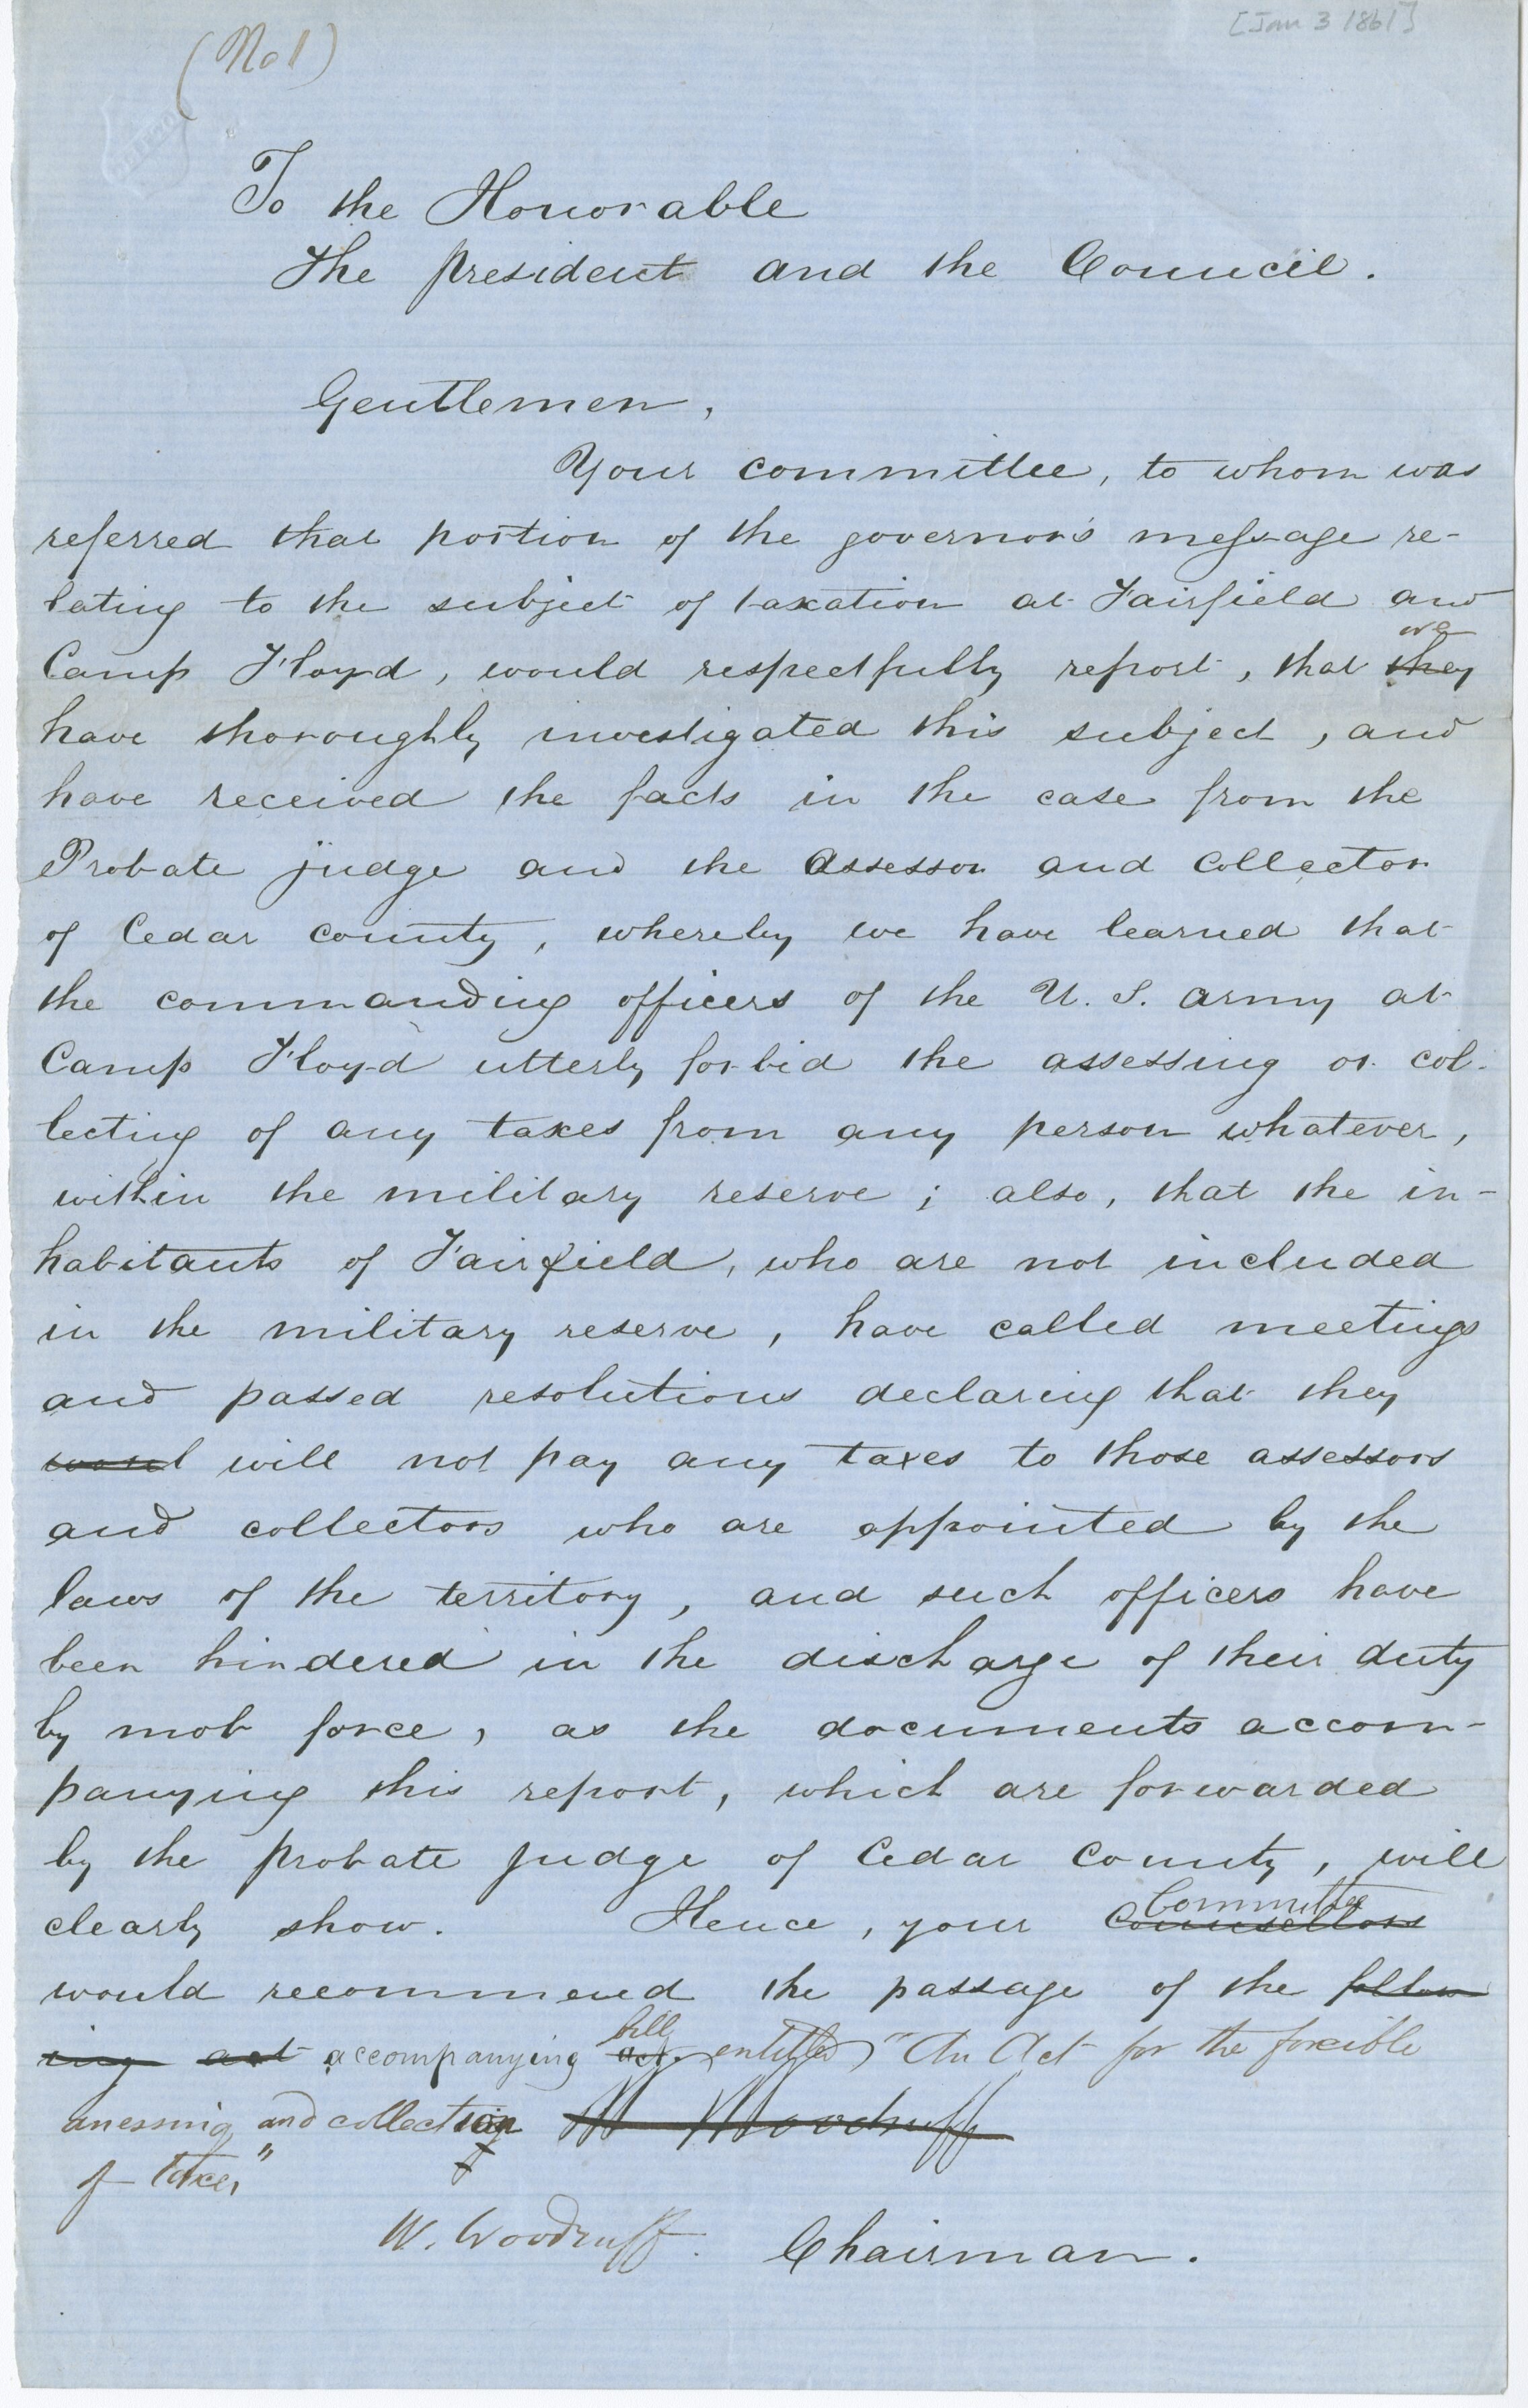 (No 1)
[Jan 3 1861]
To the Honorable
The president and the Council.
Gentlemen,
Your committee, to whom was
referred that portion of the governor's message re-
lating to the subject of taxation at Fairfield and
we
Camp Floyd, would respectfully report, that they
have thoroughly investigated this subject, and
have received the facts in the case from the
Probate judge and the assessor and collector
of Cedar county, whereby we have learned that
the commanding officers of the U. S. army at
Camp Floyd utterly forbid the assessing or col-
lecting of any taxes from any person whatever,
within the military reserve; also, that the in-
habitants of Fairfield, who are not included
in the military reserve, have called meetings
and passed resolutions declaring that they
will not pay any taxes to those assessors
and collectors who are appointed by the
laws of the territory, and such officers have
been hindered in the discharge of their duty
by mob force, as the documents accom-
panying this report, which are forwarded
by the probate judge of Cedar county, will
clearly show. Hence, your counsellors
Committee
would recommend the passage of the follow
bill
ing act accompanying act entitled "An Act for the forcible
assessing and collection W Woodruff
of taxes"
W. Woodruff. Chairman.